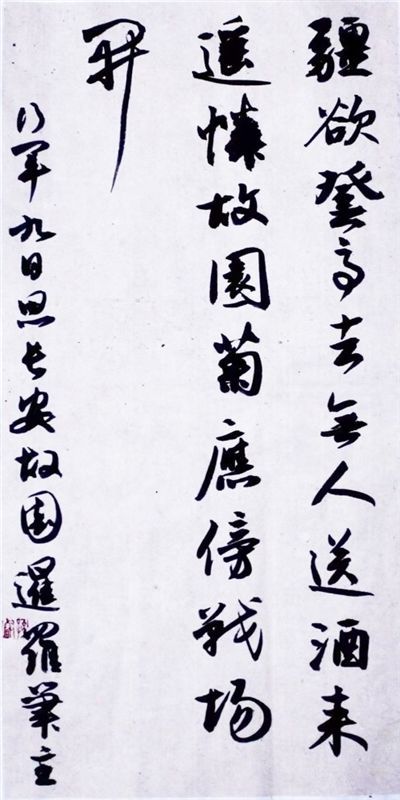 彊欲登高去無人送酒来
遥憐故園菊應傍戰場
開
行軍九日思長安故園 暹羅筆主